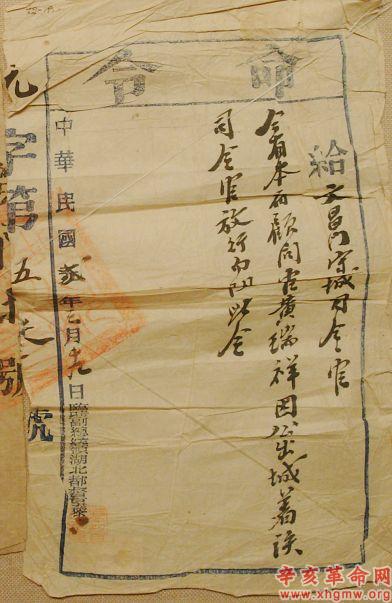 命令
給文昌門守城司令官
今有本府顧問官黃瑞祥因公出城着該
司令官放行勿阻此令
中華民國年月日副總統領湖北都督黎
元字第五號
辛亥革命网
www.xhgmw.org